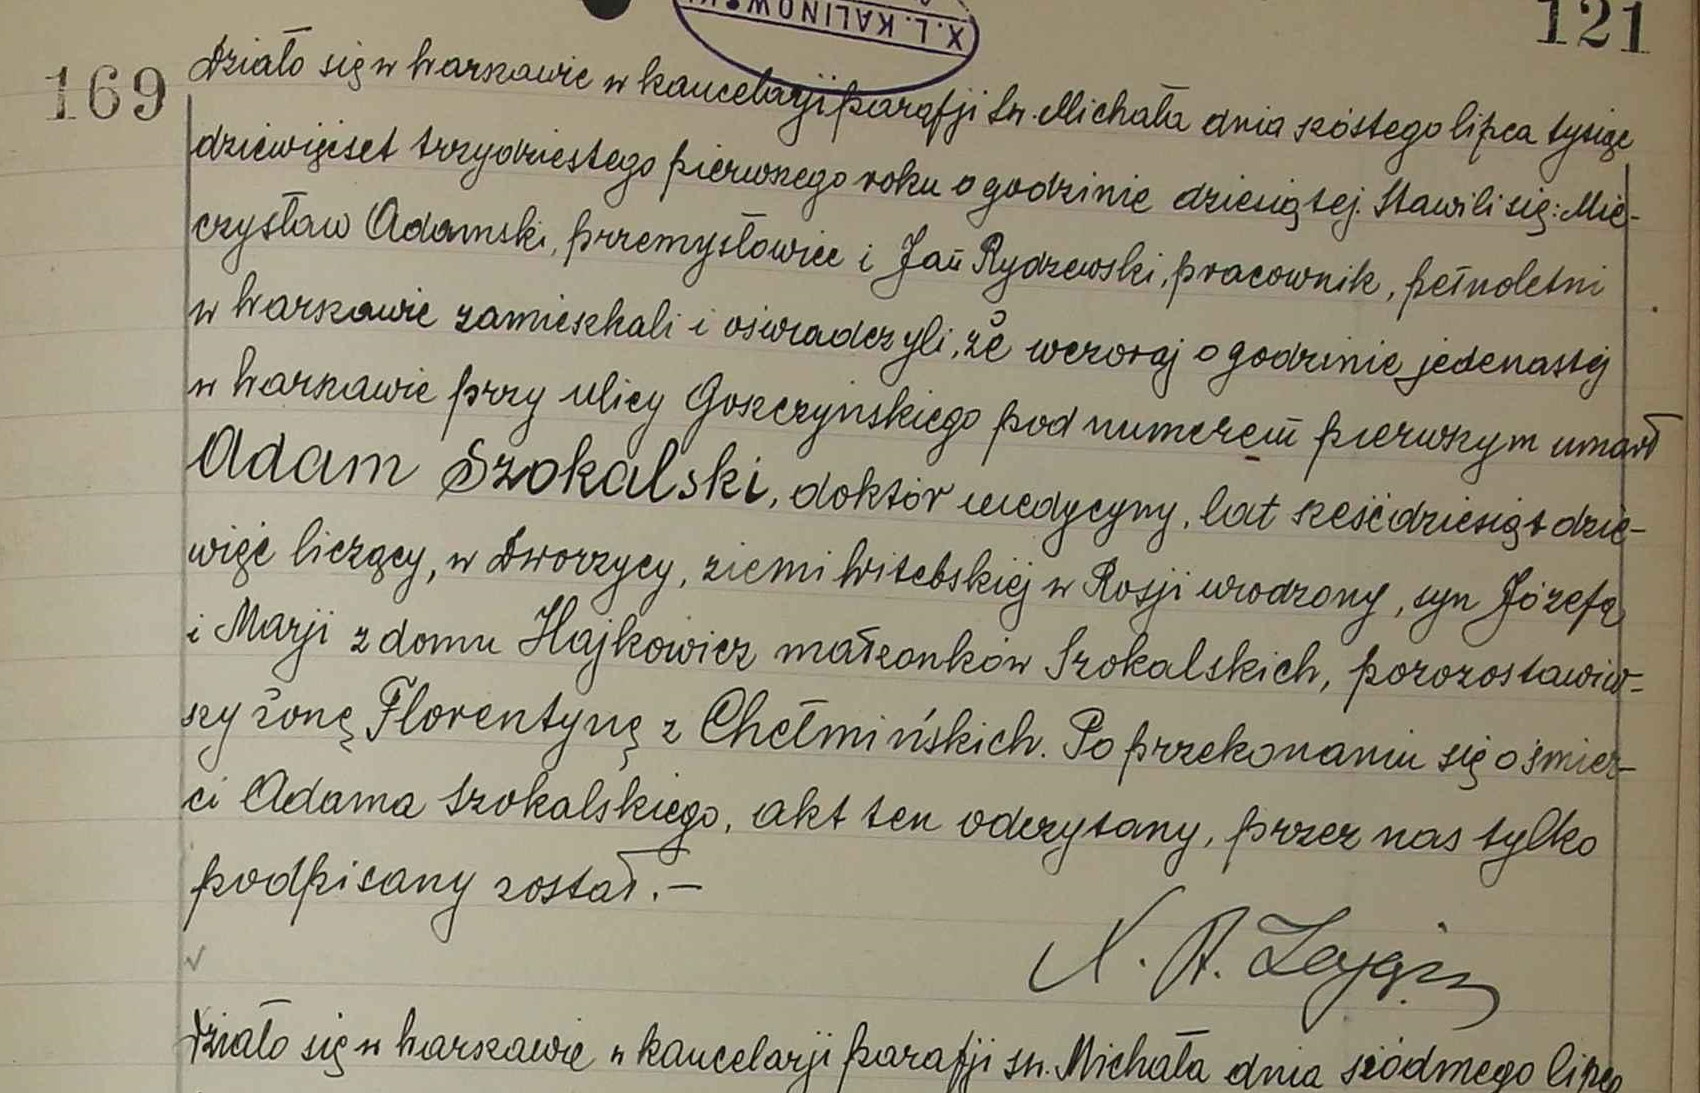 X. L. KALINOWSKI
121
169
Działo się w Warszawie w kancelarji parafji św. Michała dnia szóstego lipca tysiąc
dziewięćset trzydziestego pierwszego roku o godzinie dziesiątej. Stawili się: Mie-
czysław Adamski, przemysłowiec i Jan Rydzewski, pracownik, pełnoletni
w Warszawie zamieszkali i oświadczyli, że wczoraj o godzinie jedenastej
w Warszawie przy ulicy Goszczyńskiego pod numerem pierwszym umarł
Adam Szokalski, doktór medycyny, lat sześćdziesiąt dzie-
więć liczący, w Dworzycy, ziemi Witebskiej w Rosji urodzony, syn Józefa
i Marji z domu Hajkowicz małżonków Szokalskich, pozozostawiw-
szy żonę Florentynę z Chełmińskich. Po przekonaniu się o śmier-
ci Adama Szokalskiego, akt ten odczytany, przez nas tylko
podpisany został.—
X. A.
Działo się w Warszawie w kancelarji parafji św. Michała dnia siódmego lipca